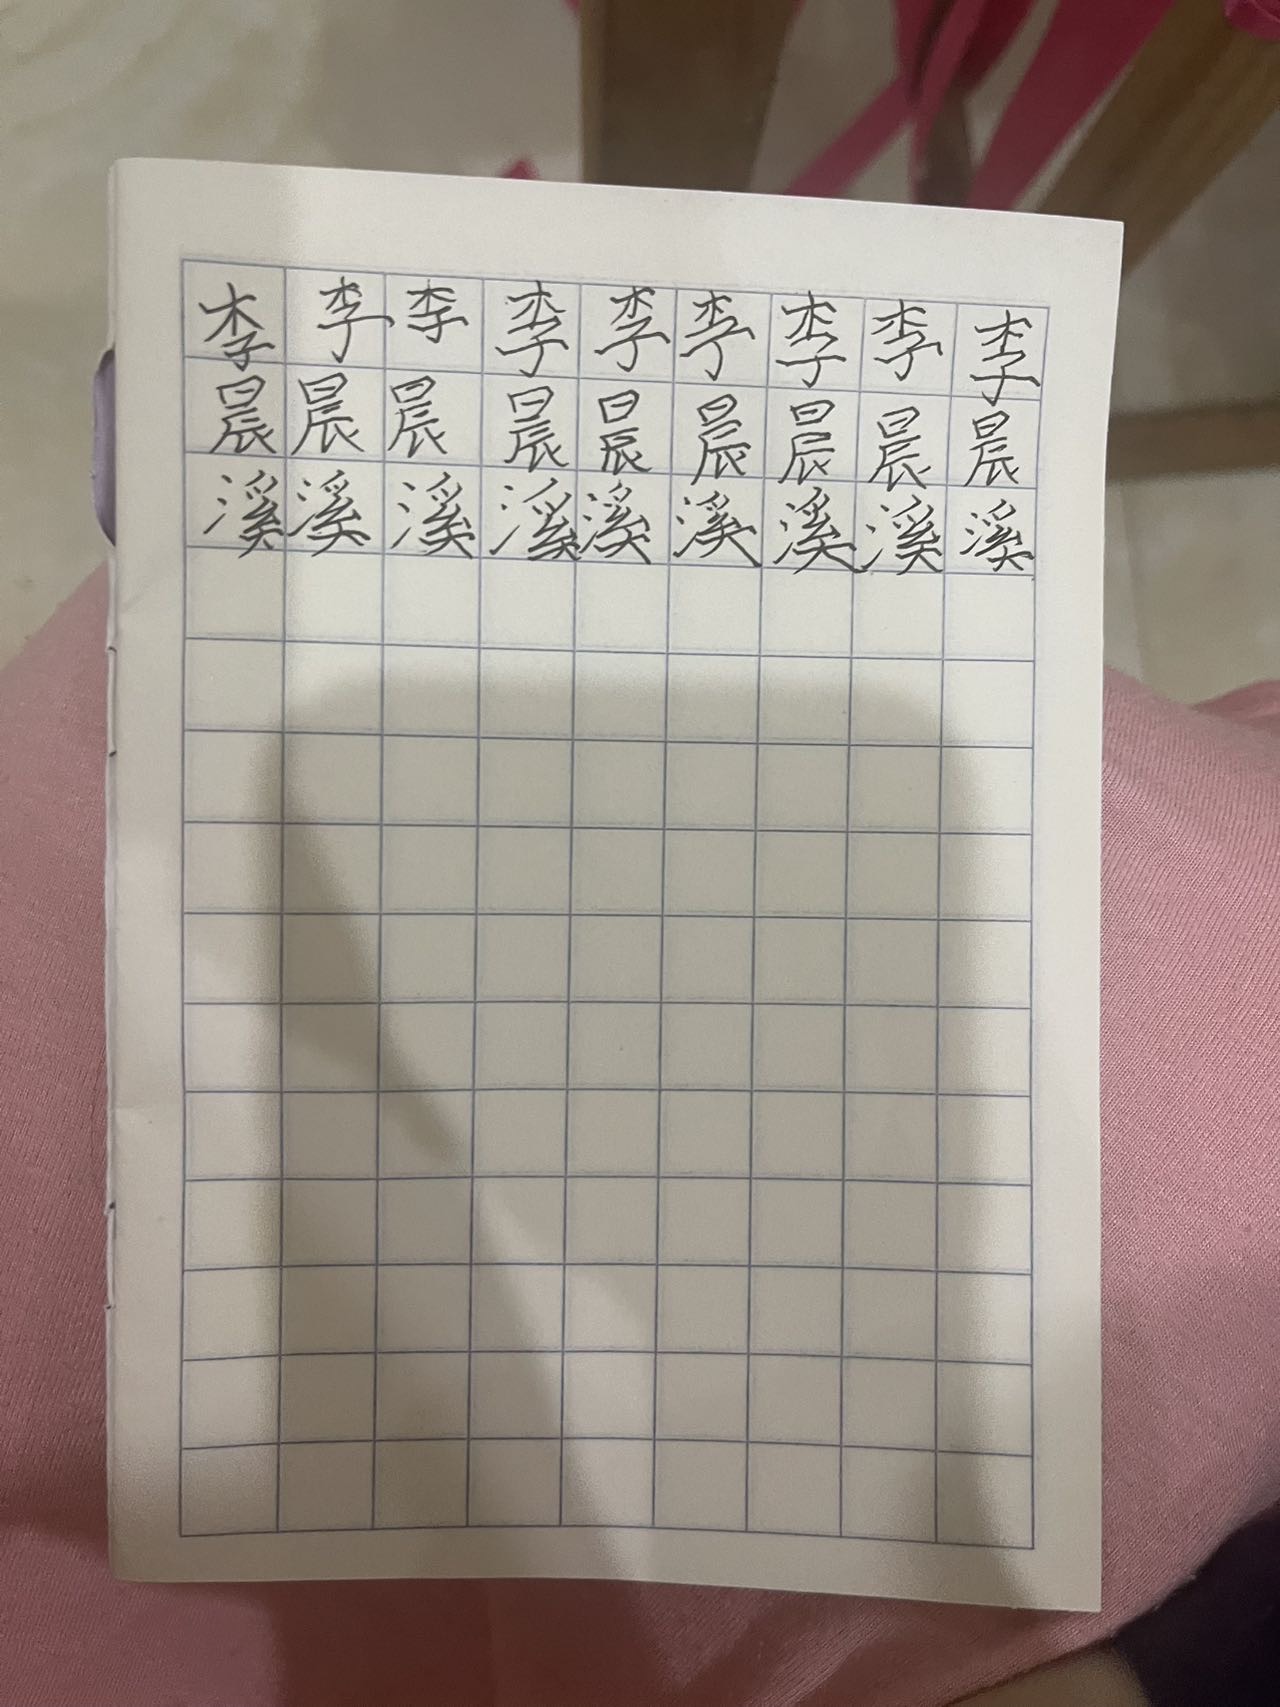 李李李李李李李李李
晨晨晨晨晨晨晨晨晨
溪溪溪溪溪溪溪溪溪